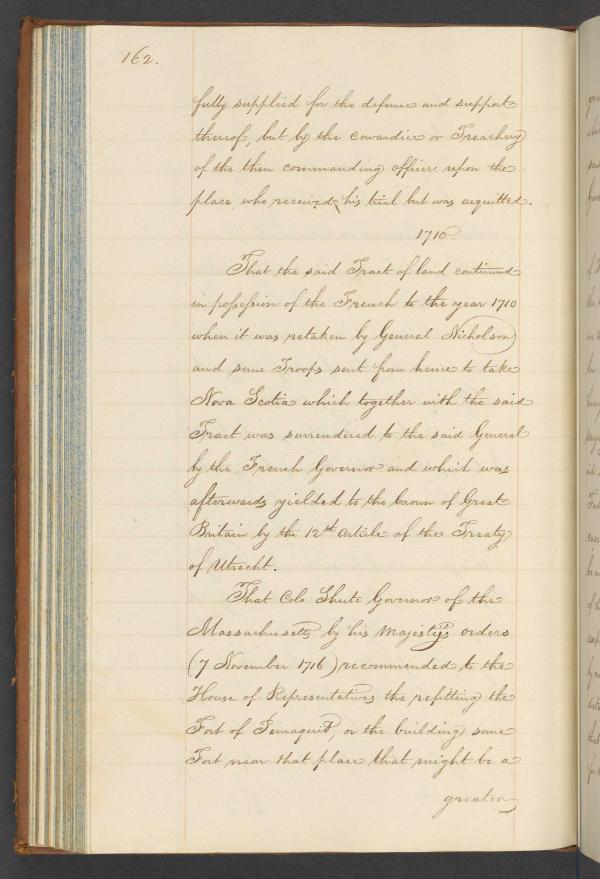 162.
fully supplied for the defence and support
thereof, but by the cowardice or Treachery
of the then commanding officer upon the
place who received his trial but was acquitted.
1710
That the said Tract of land continued
in possession of the French to the year 1710
when it was retaken by General Nicholson
and some Troops sent from hence to take
Nova Scotia which together with the said
Tract was surrendered to the said General
by the French Governor and which was
afterwards yielded to the Crown of Great
Britain by the 12th Article of the Treaty
of Utrecht.
That Colo Shute Governor of the
Massachusetts by his Majesty's orders
(7 November 1716) recommended to the
House of Representatives the refitting the
Fort of Pemaquid, or the building some
Fort near that place that might be a
greater